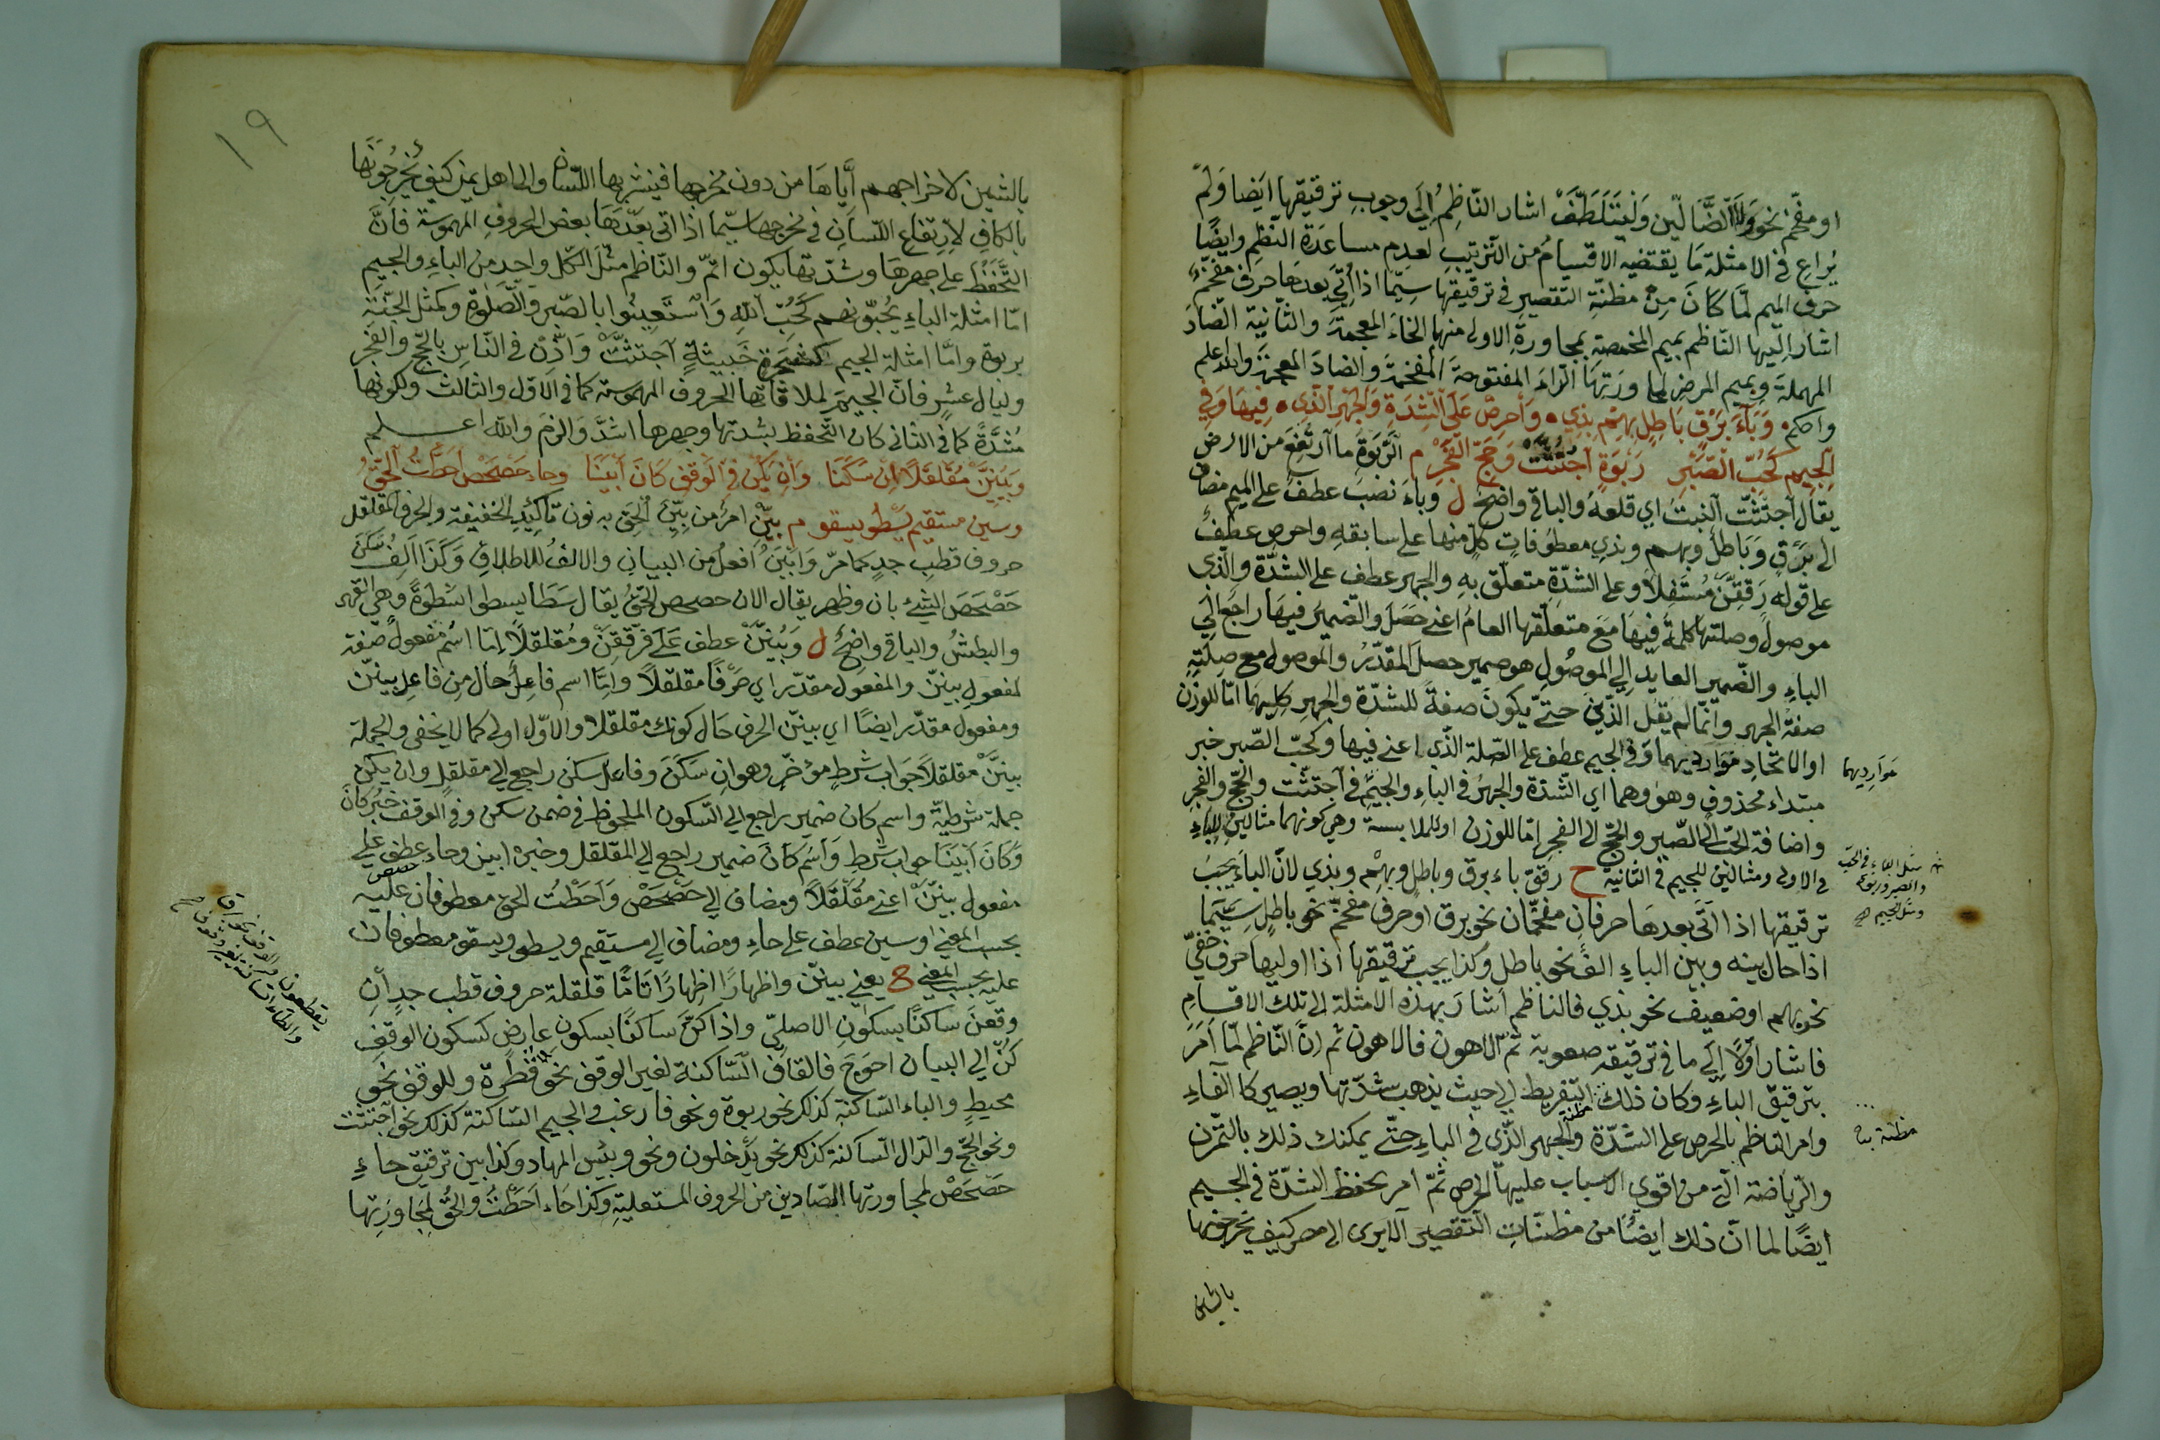 او مفخّم نحو وَلَا الضَّالّين وَلْيَتَلَطَّفْ اشار النّاظِمُ اِلَى وجوبِ ترقيقها ايَضا وَلَمْ
يُراعِ في الامثلة مَا يقتضيه الاقسامُ من التّرتيب لعدم مساعَدَة النّظمِ وايضًا
حرف الميم لمّا كانَ مِنْ مظنّةِ التّقصيرِ في ترقيقهَا سِيّما اذا اُتِيَ بعدهَا حرفٌ مفخّمٌ
اشار اِليها النّاظم بميم المخمصةِ بمجاورةِ الاولى منها الخاءَ المعجمةَ والثّانية الصّادَ
المهملةَ وبميم المرضِ لمجاورَتِهَا الرّاءَ المفتوحةَ المفخمةَ والضادَ المعجمةَ والله اعلم
واحكم وَبَاءَ بَرْقٍ بَاطِلٍ بِهِمْ بِذِي وَاَحرِصْ عَلَى الشِدَةِ وَالجَهْرِ الَّذِي فِيهَا وَفِي
الجِيمِ كَحُبِّ الصَّبْرِ رَبْوَةٍ اُجْتُثَّتْ وَحَجِّ الفَجْرِ م الرّبوَةُ ما ارتفع من الارض
يقال اجتثثتُ النبتَ اي قلعهُ والباقي واضحٌ ل وباءَ نصبَ عطفٌ على الميم مضاف
الى بَرْقٍ وَبَاطِلٍ وبهم وبذي معطوفاتٍ كلٌ منها على سابقهِ واحرص عطفٌ
على قولهِ رَقِقَنْ مُسْتَفِلًا وعلى الشدّةِ متعلّق بهِ والجهر عطف على الشدّة والّذى
موصولٌ وصلتها كلمةُ فيهَا مَعَ متعلّقها العامُ اعنى حَصَلَ والضّميرُ فيهَا راجَع اِلَى
الباءِ والضّمير العايد اِلى الموصُولِ هو ضمير حصل المقدّرُ والموصول مع صِلَتِهِ
صفة الجهر وانّما لم يقل الذّينِ حتّى يكونَ صفةً للشدّة والجهرِ كليهمَا امّا للوزن
او الاتّحادِ مَوارديهما وفي الجيم عطف على الصّلة الّذى اعنى فيها وكحبّ الصّبر خبر
مبتداء محذوفٍ وهو وهما اي الشدّة والجهرُ في الباءِ والجيمِ في اُجتثّت والحجّ والفجرِ
واضافة الحبّ الى الصّبر والحجّ الى الفجر امّا للوزن او للملابسة وهي كونهما مثالين للباءِ
في الاولى ومثالين للجيم في الثانية ح رقق باء برق وباطلٍ وبهِمْ وبذي لانّ الباءَ يجبُ
ترقيقها اذا اَتَى بعدهَا حرفانِ مفخّمان نحو برق او حرف مفخّم نحو باطلٍ سِيّمَا
اذا حال بينه وبين الباءِ الفٌ نحو باطل وكذا يجب ترقيقها اذا اوليها حرف خفيّ
نحو بهم او ضعيف نحو بذي فالناظم اشارَ بهذه الامثلة اِلى تلك الاقسامِ
فاشار اوّلًا اِلَى ما في ترقيقه صعوبة ثمّ الاهون فالاهون ثم انّ النّاظم لمّا اَمَرَ
بترقيق الباءِ وكان ذلك التّفريط اِلى حيث يذهب شدّتها ويصير كالفاءِ
وامر الناظم بالحرص على الشدّة والجهر الّذى في الباءِ حتّى يمكنك ذلك بالتمرن
والرّياضة الّتى من اقوى الاسباب عليها الحرص ثمّ امر بحفظ الشدّة في الجيم
ايضًا لما انّ ذلك ايضًا من مظنّاتِ التّقصير الا يرى الى مصر كيف يخرجونها
بالشين
مَوارِديهما
مثل الباء في الحبّ
والصبر وربوة
ومثل الجيم
مظنّة
١٩
بالشين لاخراجهم اَيّاهَا من دون مخرجها فينشر بها اللسّان والى اهل يمن كيف يُخرجُونَها
بالكافِ لاِرتفاع اللّسَانِ في مخرجها سِيّما اذا اتى بعدهَا بعض الحروفِ المهموسة فاِنَّ
التَّحَفُّظَ على جهرهَا وشدّتها يكون اتمّ والنّاظم مثّلَ لكّل واحِدٍ من الباءِ والجيم
امّا امثلة الباءِ يُحبّونهم كَحُبِّ اللهِ وَاسْتَعِينُوا بالصّبر والصّلوة وكمثل الجنّة
بربوة وامّا امثلة الجيم كشجرة خَبيثةٍ اجتثّتْ وَاذّن في النّاسِ بالحجّ والفجر
وليال عشرٍ فانّ الجيم لملاقاتها الحروف المهموسة كما في الاوّل والثالث ولكونها
مُشدَّدَةً كما في الثاني كان التّحفظ بشدتها وجهرها اشدّ وَالزمَ والله اعلم
وَبَيِّنَنْ مُقَلْقَلًا اِنْ سَكَنَا وَاِنْ يَكُنْ فِي الوَقفِ كَانَ اَبْيَنَا وحاء حَصْحَصْ اَحَطْتُ الحَقُّ
وسين مستقيم يسْطو يسقو م بيِّن امرٌ من بيّن الحق به نون تأكيدِ الخفيفة والحرف المقلقل
حروف قطب جدٍ كما مرّ وَاَبْيَنَ اَفعلُ من البيانِ والالفُ للاطلاقِ وَكَذَا اَلِفُ سَكَنَ
حَصْحَصَ الشيءُ بان وظهر يقال الان حصحص الحقُّ يقال سَطَا يسطو سَطْوةً وهي القهر
والبطشُ والباقي واضحٌ ل وَبَيِّنَنْ عطف عَلَى فَرَقِّقَنْ ومُقلقلًا امّا اسم مفعولٍ صفة
لمفعول بيننّ والمفعول مقدّر اي حَرْفًا مقلقلًا وامَّا اسم فاعل حال من فاعلِ بيننّ
ومفعول مقدّر ايضًا اي بيننّ الحرف حَال كونك مقلقلًا والاوّل اولى كما لا يخفى والجملة
بيننَّ مقلقلًا جَواب شرطٍ مؤخّرٍ وهو ان سَكَنَ وفاعل سكن راجع الى مقلقل وان يكن
جملة شرطيّة واسم كان ضمير راجع الى السّكون الملحوظ في ضمن سكن وفي الوقف خبر كَانَ
وَكَانَ اَبْيَنَا جواب شرطٍ وَاسْم كَانَ ضمير راجع الى المقلقل وخبره ابين وحاء عطف على
مفعول بيننّ اعنى مُقَلْقَلًا ومضاف الى حَصْحَصْ وَاَحَطْتُ الحق معطوفان على حصحص
بحسب المعنى وسين عطف على حاءِ ومضاف الى مستقيم ويسطو ويسقو معطوفان
عليه بحسب المعنى ح يعنى بيننّ واظهارًا اظهارًا تامًّا قلقلة حروف قطب جدٍ ان
وقعنَ ساكنًا بسكونِ الاصليّ واذا كنّ ساكنًا بسكون عارض كسكون الوقف
كنّ الى البيان احوجَ فالقاف السّاكنة لغير الوقف نحو قطرة وللوقف نحو
محيطٍ والباء السّاكنة كذلك نحو ربوة ونحو فارغب والجيم السّاكنة كذلك نحو اجتثّت
ونحو الحجّ والدّال السّاكنة كذلك نحو يدْخلون ونحو وبئس المهاد وكذا بيّن ترقيق حاءِ
حَصْحَصْ لمجاورتها الصّادين من الحروف المستعلية وكذا حَاء اَحَطْتُ والحقُّ لِمُجاوَرَتِها
يقطعون